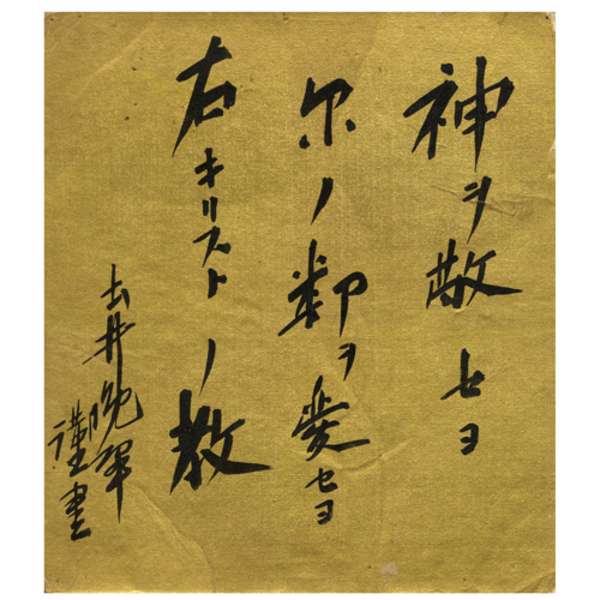 神ヲ敬セヨ
尓ノ鄰ヲ愛セヨ
右キリストノ教
土井晩翠
謹書